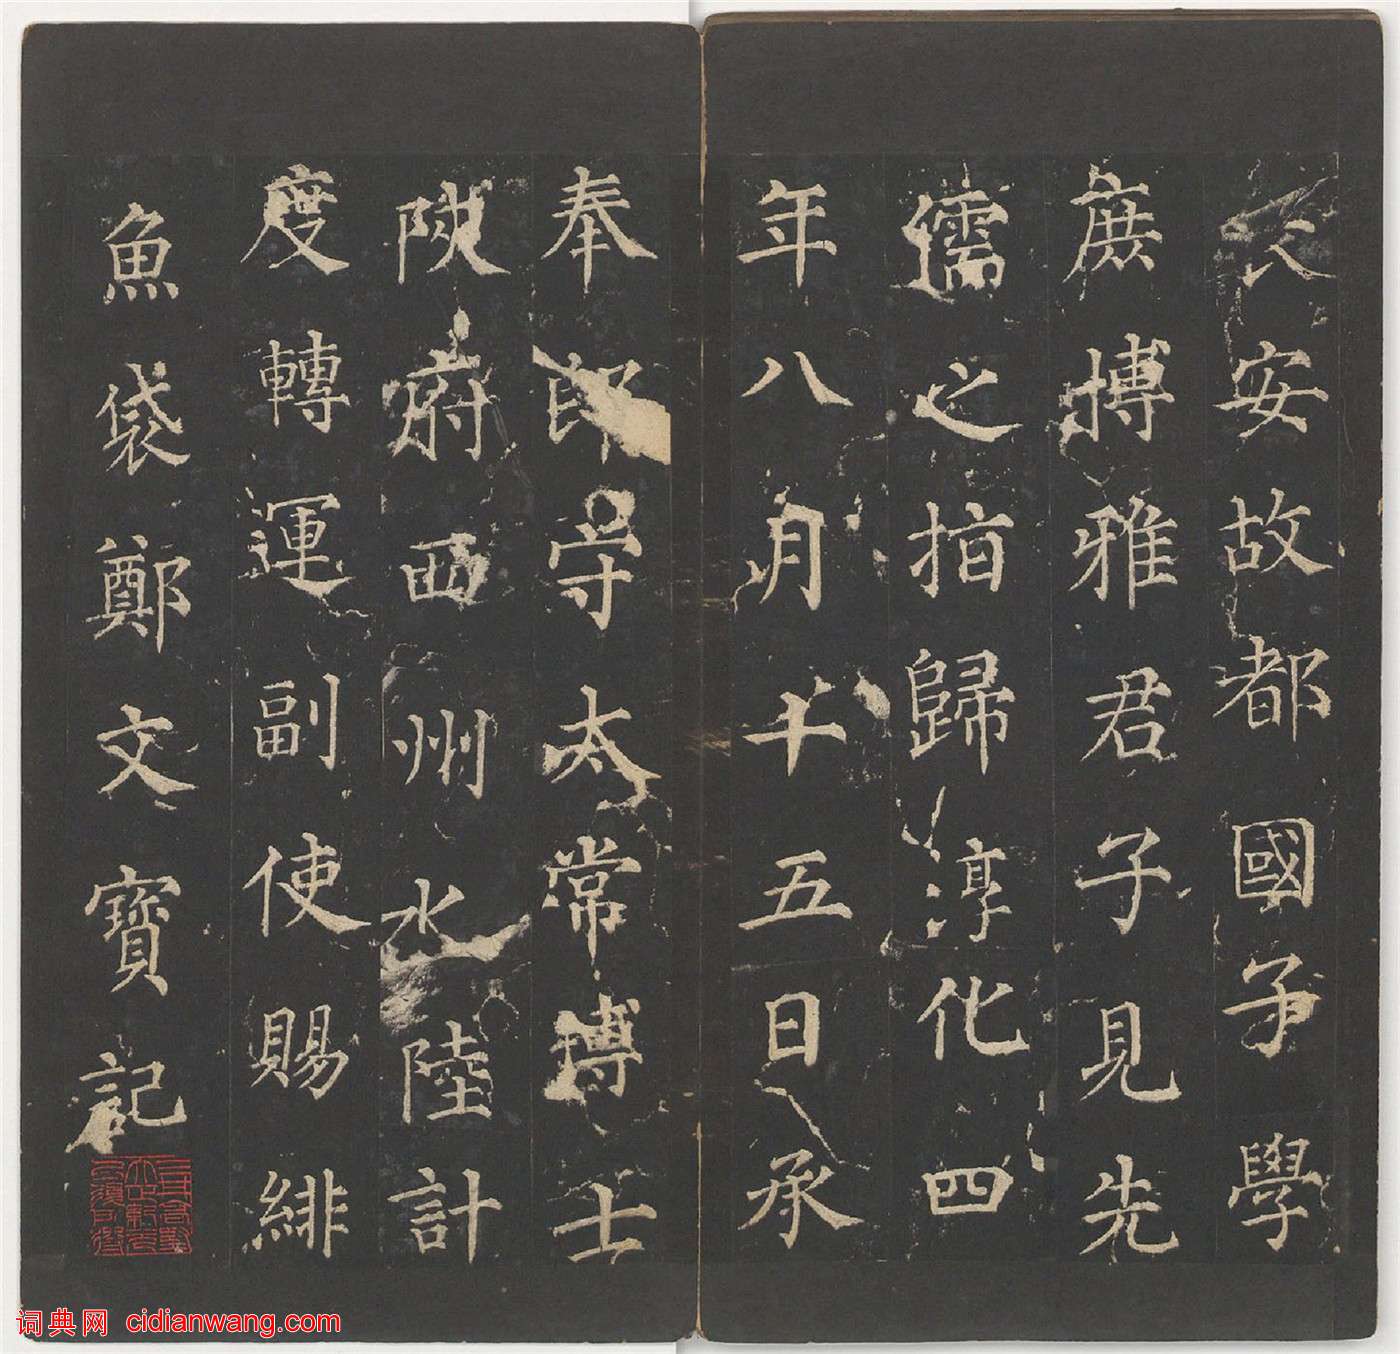 長安故都國子學
庶博雅君子見先
儒之指歸淳化四
年八月十五日承
奉郎守太常博士
陝府西州水陸計
度轉運副使賜緋
魚袋鄭文寶記
词典网 cidianwang.com